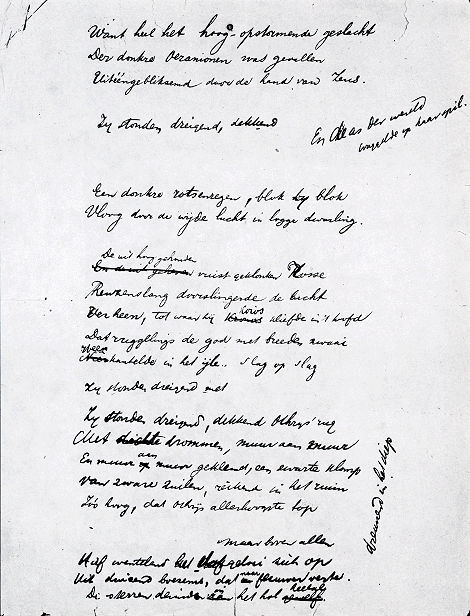 Want heel het hoog-opstormende geslacht
Der donkre Oeranionen was gevallen
Uitééngebliksemd door de hand van Zeus.
Zij stonden dreigend, dekkend
En de as der wereld
waggelde op haar spil.
Een donkre rotsenregen, blok by blok
Vloog door de wijde lucht in logge dwarling.
De uit hoog geheven
vuist geklonken Rosse
Reuzenslang doorslingerde de lucht
Ver heen, tot waar hij Koios kliefde in 't hoofd
Dat rugglings de god met breeden zwaai
Weer kantelde in het ijle.. slag op slag
Zij stonden dreigend met
Zij stonden dreigend, dekkend Othrys' rug
Met drommen, muur aan muur
En muur aan muur geklemd, een zwarte klomp
Van zware zuilen, reikend in het ruim
Zóó hoog, dat Othrys allerhoogste top
dreunend in het diep
maar boven allen
Hief wentelend het zich op
Uit duizend boezems, dat
De sterren deinde het hol